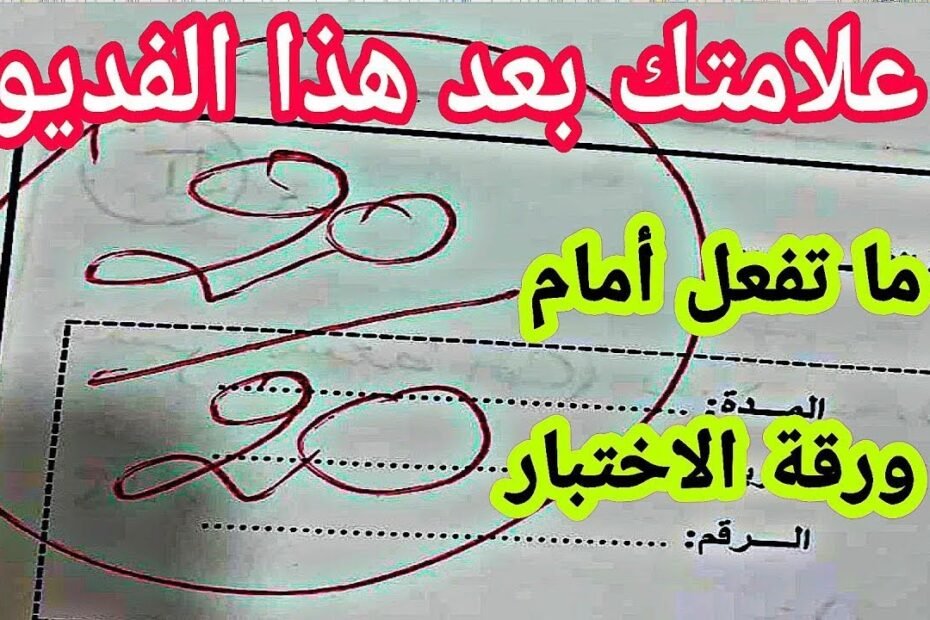 علامتك بعد هذا الفديو
20
ما تفعل أمام
20
المــدة:
ورقة الاختبار
الــرقم: